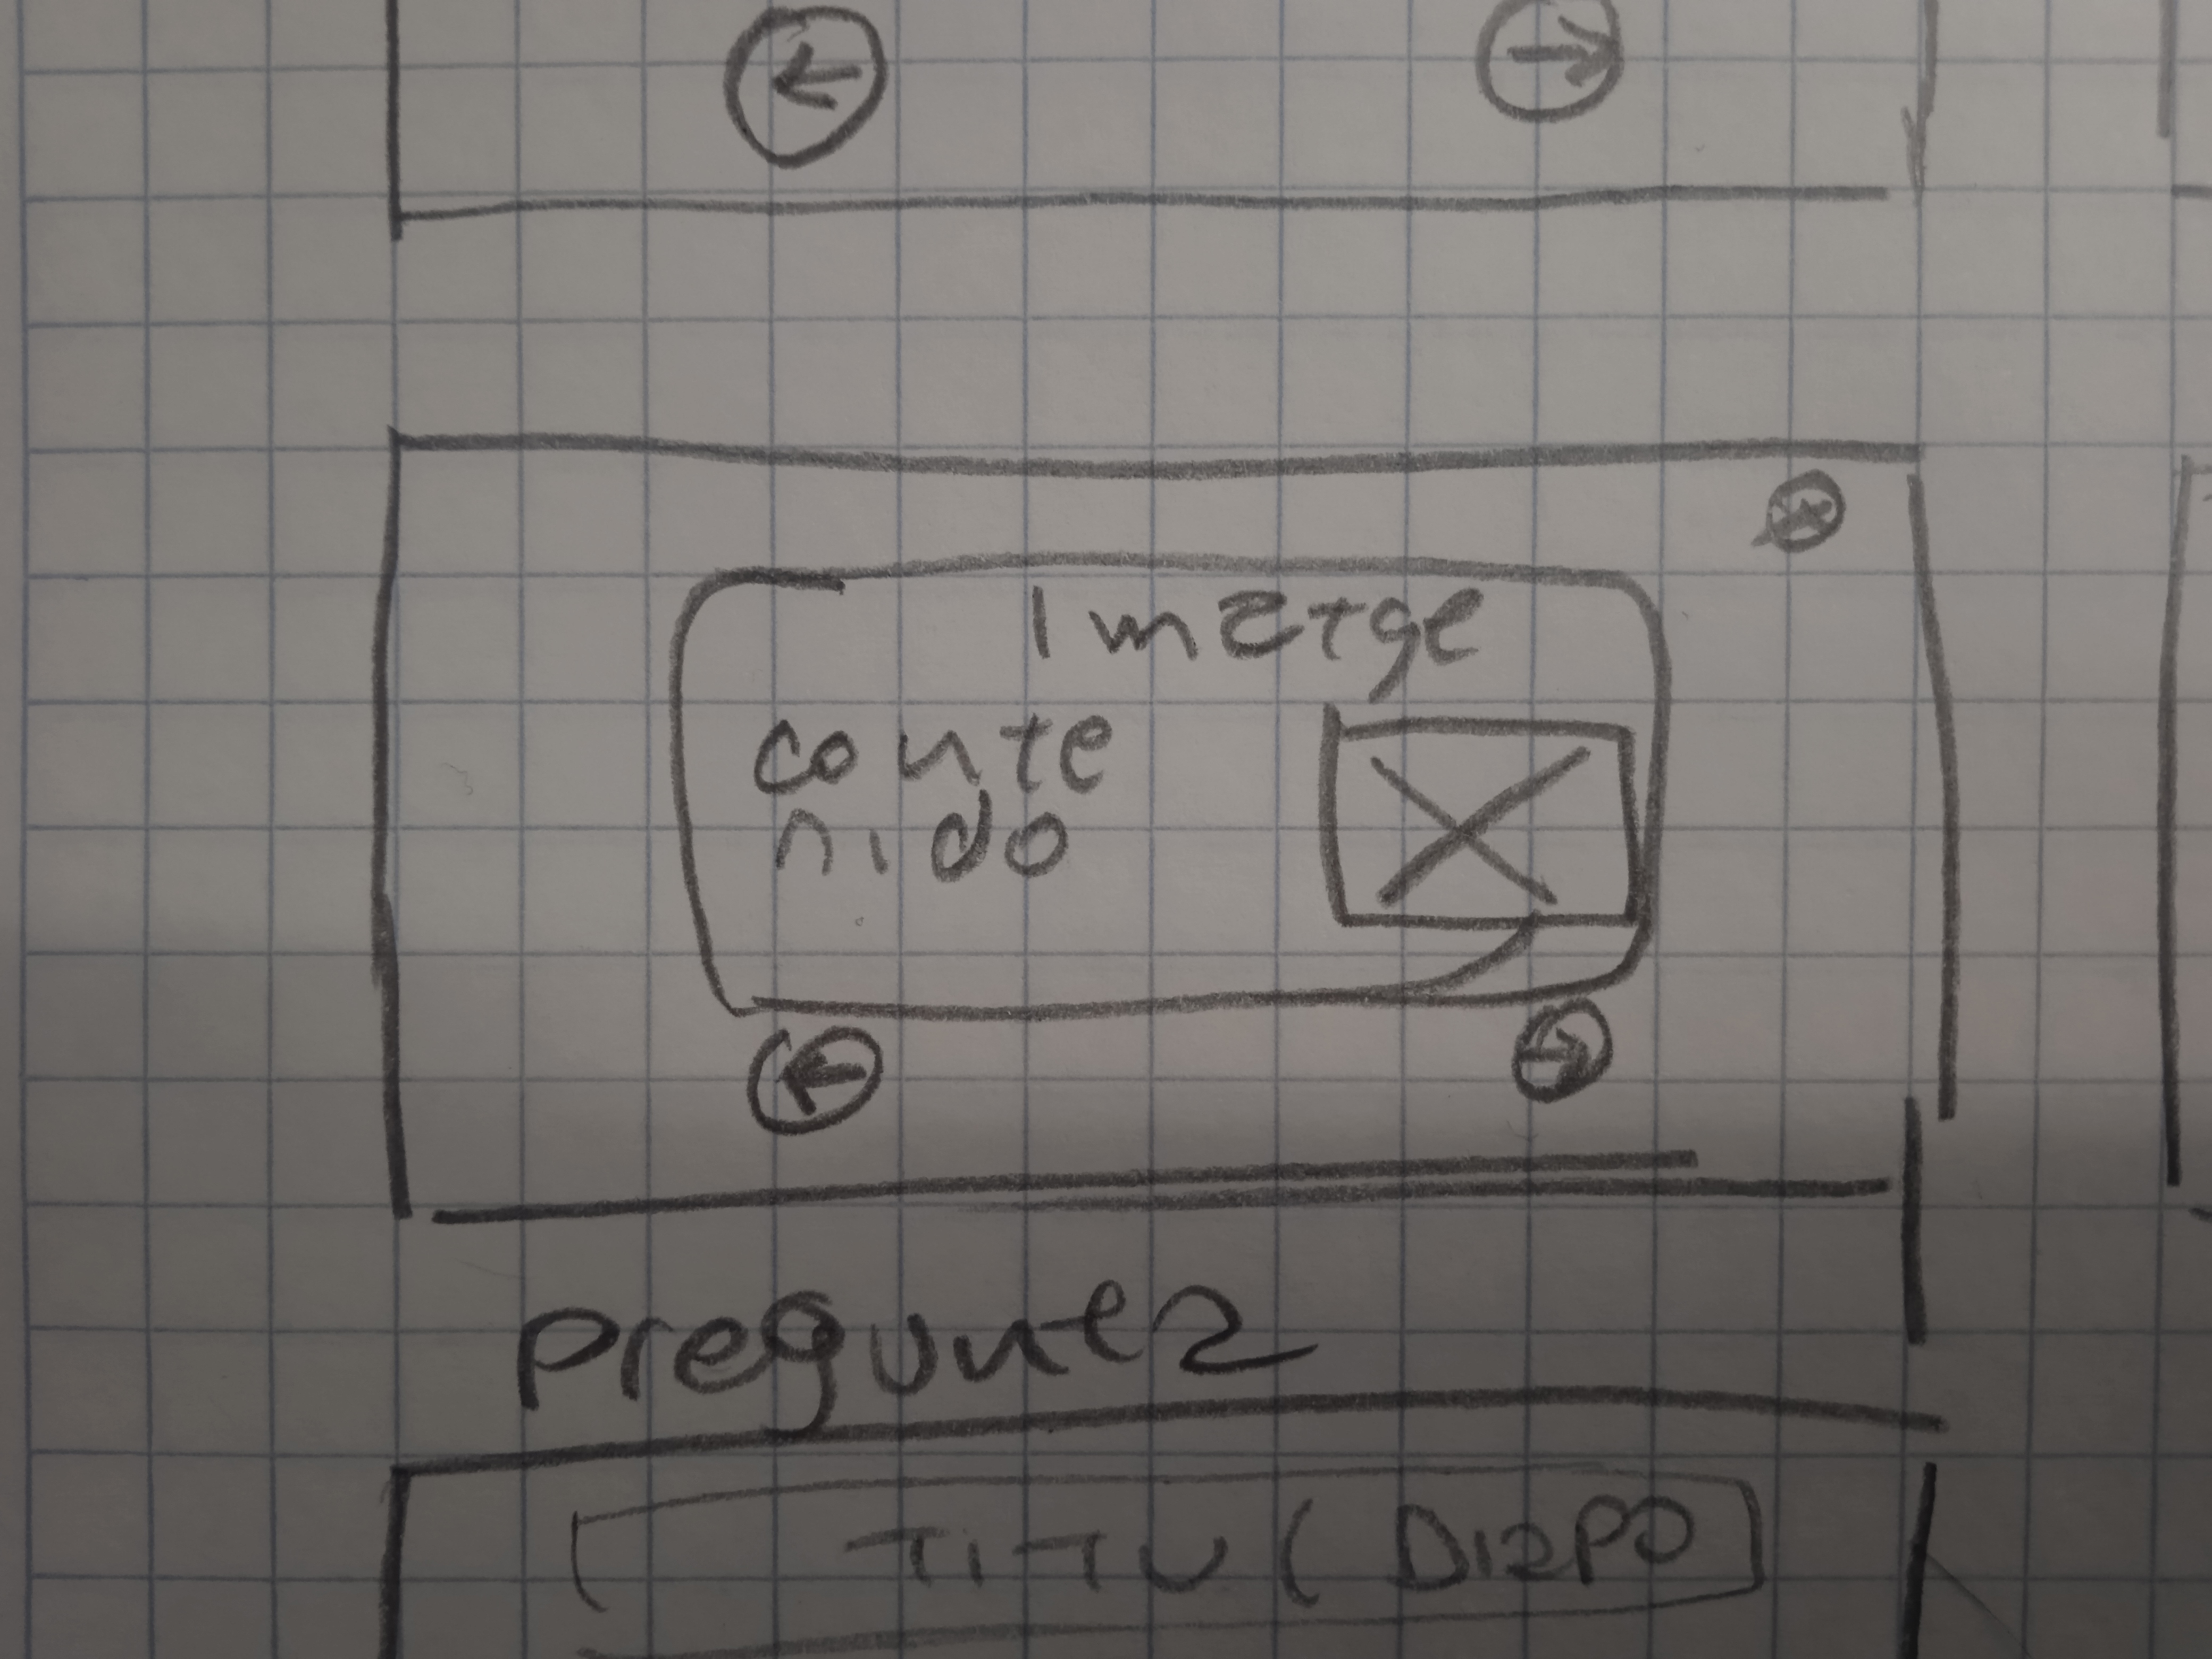 Imatge
conte
nido
pregunta
TITU( DIAPO